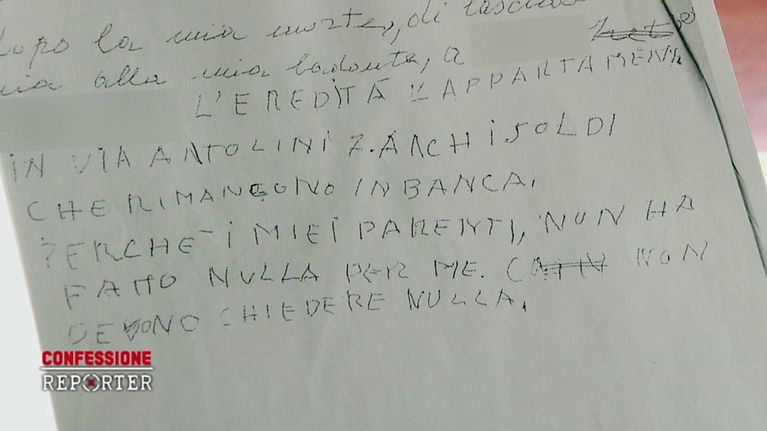 dopo la mia morte, di lascio
mia alla mia badante, a
L'EREDITÀ L'APPARTAMEN.
IN VIA ANTOLINI 7. ANCH I SOLDI
CHE RIMANGONO IN BANCA.
PERCHE I MIEI PARENTI, NON HA
FATTO NULLA PER ME. NON
DEVONO CHIEDERE NULLA.
CONFESSIONE
REPORTER